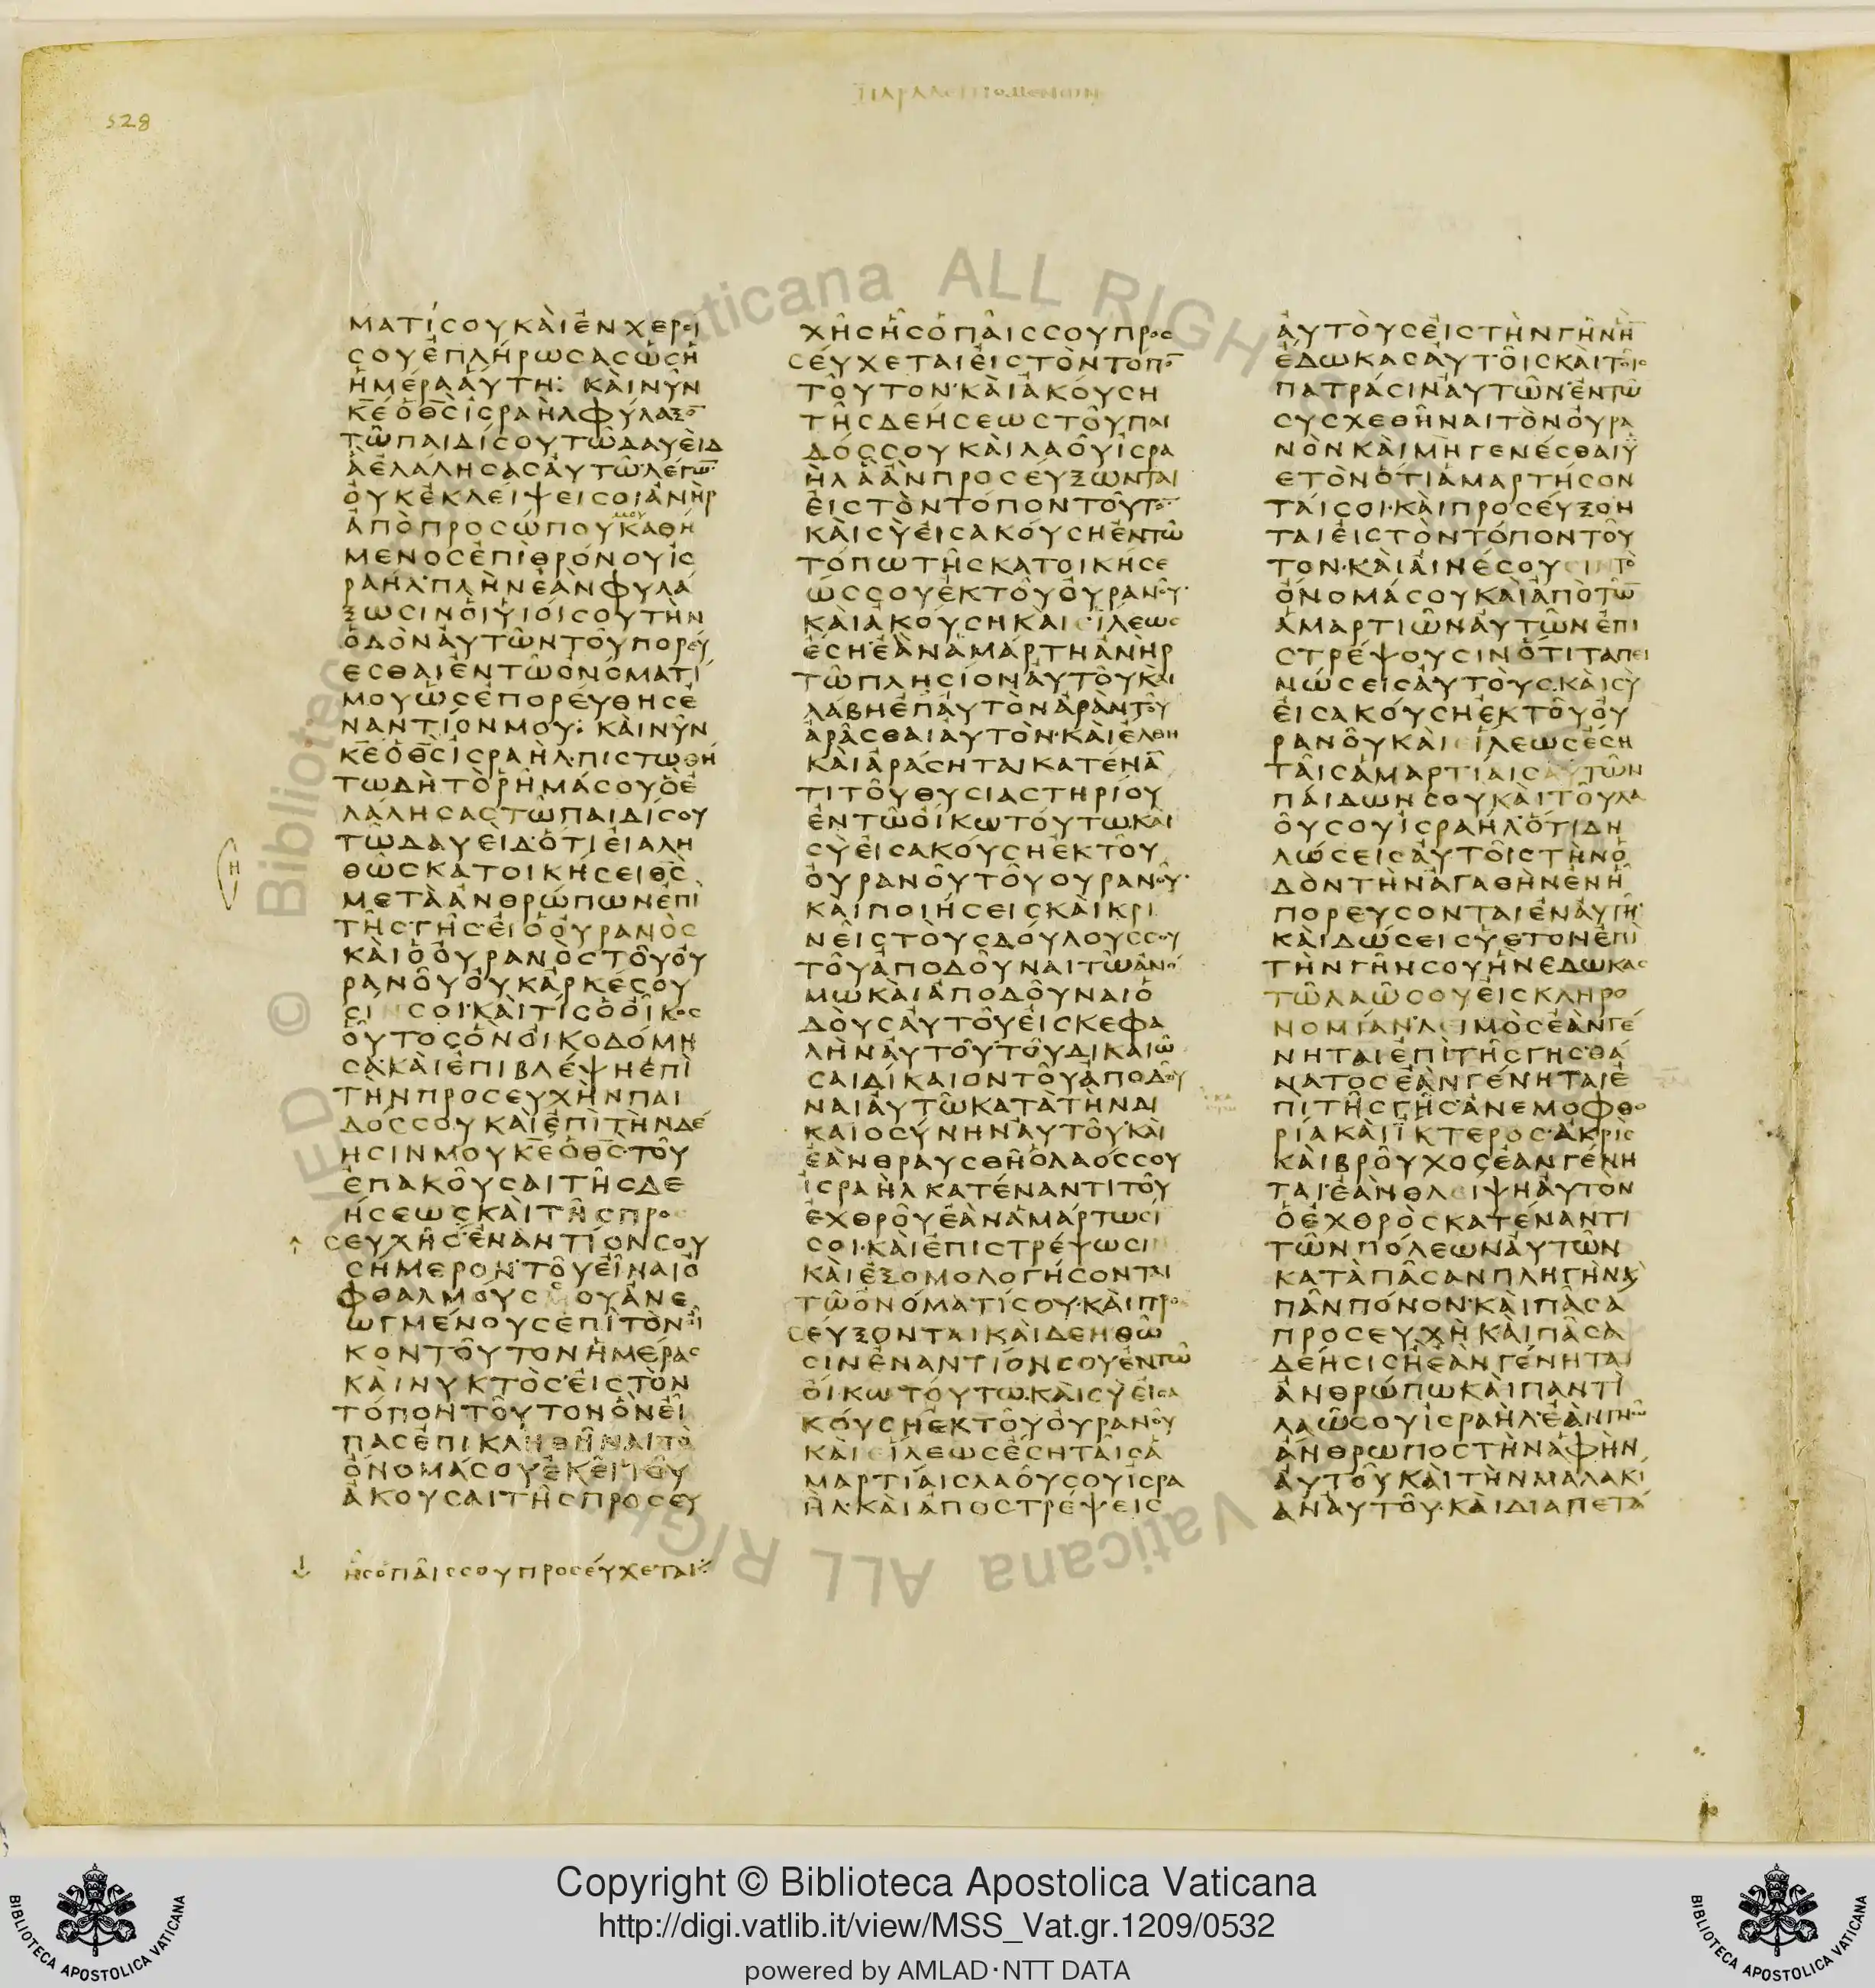 528
ΠΑΡΑΛΕΙΠΟΜΕΝΩΝ
ΜΑΤΊϹΟΥΚΑῚἘΝΧΕΡϹΙ
ϹΟΥἘΠΛΉΡΩϹΑϹὩϹΗ
ἩΜΈΡΑΑΎΤΗ: ΚΑῚΝΥ͂Ν
Κ̅Ε̅ὉΘ̅Ϲ̅ἸϹΡΑῊΛΦΎΛΑΞΟ̅
ΤΩ͂ΠΑΙΔΊϹΟΥΤΩ͂ΔΑΥΕῚΔ
ἋἘΛΆΛΗϹΑϹΑΥ̓ΤΩ͂·ΛΈΓΩ̅·
ΟΥ̓ΚἘΚΛΕΊΨΕΙϹΟΙἈΝῊΡ
ἈΠῸΠΡΟϹΏΠΟΥΜΟΥΚΑΘΉ
ΜΕΝΟϹἘΠῚΘΡΌΝΟΥἸϹ
ΡΑΉΛ·ΠΛῊΝἘᾺΝΦΥΛΆ
ΞΩϹΙΝΟἹΥἹΟΊϹΟΥΤῊΝ
ὉΔῸΝΑΥ̓ΤΩ͂ΝΤΟΥ͂ΠΟΡΕΎ
ΕϹΘΑΙἘΝΤΩ͂ὈΝΌΜΑΤΊ
ΜΟΥὩϹἘΠΟΡΕΎΘΗϹἘ
ΝΑΝΤΊΟΝΜΟΥ: ΚΑῚΝΥ͂Ν
Κ̅Ε̅ὉΘ̅Ϲ̅ἸϹΡΑῊΛ·ΠΙϹΤΩΘΉ
ΤΩΔῊΤῸΡΗ͂ΜΆϹΟΥὋἘ
ΛΆΛΗϹΑϹΤΩ͂ΠΑΙΔΊϹΟΥ
ΤΩ͂ΔΑΥΕΙΔ·ὍΤΙΕΙἈΛΗ
Η
ΘΩ͂ϹΚΑΤΟΙΚΉϹΕΙΘ̅Ϲ̅
ΜΕΤᾺἈΝΘΡΏΠΩΝἘΠῚ
ΤΗ͂ϹΓΗ͂Ϲ·ΕἸὉΟΥ̓ΡΑΝῸϹ
ΚΑῚὉΟΥ̓ΡΑΝῸϹΤΟΥ͂ΟΥ̓
ΡΑΝΟΥ͂ΟΥ̓ΚἈΡΚΈϹΟΥ
ϹΙΝϹΟΙ·ΚΑῚΤΊϹὉΟἾΚΟϹ
ΟΥ͂ΤΟϹὋΝΩ͂ΙΚΟΔΌΜΗ
ϹΑ·ΚΑῚἘΠΙΒΛΈΨΗἘΠῚ
ΤῊΝΠΡΟϹΕΥΧῊΝΠΑΙ
ΔΌϹϹΟΥΚΑῚἘΠῚΤῊΝΔΈ
ΗϹΙΝΜΟΥΚ̅Ε̅ὉΘ̅Ϲ̅·ΤΟΥ͂
ἘΠΑΚΟΥ͂ϹΑΙΤΗ͂ϹΔΕ
ΉϹΕΩϹΚΑῚΤΗ͂ϹΠΡΟϹ
ϹΕΥΧΗ͂Ϲ·ἘΝΑΝΤΊΟΝϹΟΥ
ϹΉΜΕΡΟΝ·ΤΟΥ͂ΕἾΝΑΙὈ
ΦΘΑΛΜΟΎϹϹΟΥἈΝΕ
ΩΓΜΈΝΟΥϹἘΠῚΤῸΝΟἾ
ΚΟΝΤΟΥ͂ΤΟΝἩΜΈΡΑϹ
ΚΑῚΝΥΚΤῸϹ·ΕἸϹΤῸΝ
ΤΌΠΟΝΤΟΥ͂ΤΟΝὋΝΕἾ
ΠΑϹἘΠΙΚΛΗΘΗ͂ΝΑΙΤῸ
ὌΝΟΜΆϹΟΥἘΚΕΙ͂ΤΟΥ͂
ἈΚΟΥϹΑΙΤΗ͂ϹΠΡΟϹΕΥ
ΗϹὉΠΑΙ͂ϹϹΟΥΠΡΟϹΕΎΧΕΤΑΙ
ΧΗ͂ϹΗϹὉΠΑΙ͂ϹϹΟΥΠΡΟϹ
ϹΕΎΧΕΤΑΙΕἸϹΤῸΝΤΌΠΟ̅
ΤΟΥ͂ΤΟΝ·ΚΑῚἈΚΟΎϹΗ
ΤΗ͂ϹΔΕΉϹΕΩϹΤΟΥ͂ΠΑΙ
ΔΌϹϹΟΥΚΑῚΛΑΟΥ͂ἸϹΡΑ
ῊΛἋἊΝΠΡΟϹΕΎΞΩΝΤΑΙ
ΕἸϹΤῸΝΤΌΠΟΝΤΟΥ͂ΤΟ̅·
ΚΑῚϹῪΕἸϹΑΚΟΎϹΗἘΝΤΩ͂
ΤΌΠΩΤΗ͂ϹΚΑΤΟΙΚΉϹΕ
ΏϹϹΟΥἘΚΤΟΥ͂ΟΥ̓ΡΑΝΟΥ͂·
ΚΑῚἈΚΟΎϹΗΚΑῚἽΛΕΩϹ
ἘϹΗ·ἘᾺΝἉΜΆΡΤΗἈΝῊΡ
ΤΩ͂ΠΛΗϹΊΟΝΑΥ̓ΤΟΥ͂ΚΑῚ
ΛΆΒΗἘΠΑΥ̓ΤῸΝἈΡᾺΝΤΟΥ͂
ἈΡΑ͂ϹΘΑΙΑΥ̓ΤῸΝ·ΚΑῚἜΛΘΗ
ΚΑῚἈΡΆϹΗΤΑΙΚΑΤΈΝΑ̅
ΤΙΤΟΥ͂ΘΥϹΙΑϹΤΗΡΊΟΥ
ἘΝΤΩ͂ΟἼΚΩΤΟΎΤΩ·ΚΑῚ
ϹῪΕἸϹΑΚΟΎϹΗἘΚΤΟΥ͂
ΟΥ̓ΡΑΝΟΥ͂ΤΟΥ͂ΟΥΡΑΝΟΥ͂·
ΚΑῚΠΟΙΉϹΕΙϹΚΑῚΚΡΙ
ΝΕΙ͂ϹΤΟῪϹΔΟΎΛΟΥϹϹΟΥ
ΤΟΥ͂ἈΠΟΔΟΥ͂ΝΑΙΤΩ͂ἈΝΌ
ΜΩΚΑῚἈΠΟΔΟΥ͂ΝΑΙὉ
ΔΟῪϹΑΥ̓ΤΟΥ͂ΕἸϹΚΕΦΑ
ΛῊΝΑΥ̓ΤΟΥ͂·ΤΟΥ͂ΔΙΚΑΙΩ͂
ϹΑΙΔΊΚΑΙΟΝΤΟΥ͂ἈΠΟΔΟΥ͂
ΝΑΙΑΥ̓ΤΩ͂ΚΑΤᾺΤῊΝΔΙ
ΚΑΙΟϹΎΝΗΝΑΥ̓ΤΟΥ͂·ΚΑῚ
ἘᾺΝΘΡΑΥϹΘΗ͂ὉΛΑΌϹϹΟΥ
ἸϹΡΑῊΛΚΑΤΈΝΑΝΤΙΤΟΥ͂
ἘΧΘΡΟΥ͂ἘᾺΝἉΜΆΡΤΩϹΙ
ϹΟΙ·ΚΑῚἘΠΙϹΤΡΈΨΩϹΙΝ
ΚΑῚἘΞΟΜΟΛΟΓΉϹΟΝΤΑΙ
ΤΩ͂ὈΝΌΜΑΤΊϹΟΥ·ΚΑῚΠΡΟϹ
ϹΕΎΞΟΝΤΑΙΚΑῚΔΕΗΘΩ͂
ϹΙΝἘΝΑΝΤΊΟΝϹΟΥἘΝΤΩ͂
ΟἼΚΩΤΟΎΤΩ·ΚΑῚϹῪΕἸϹΑ
ΚΟΎϹΗἘΚΤΟΥ͂ΟΥ̓ΡΑΝΟΥ͂
ΚΑῚΕἽΛΕΩϹἜϹΗΤΑΙ͂ϹἉ
ΜΑΡΤΊΑΙϹΛΑΟΎϹΟΥἸϹΡΑ
ῊΛ·ΚΑῚἈΠΟϹΤΡΈΨΕΙϹ
ΑΥ̓ΤΟῪϹΕἸϹΤῊΝΓΗ͂ΝἪ
ἜΔΩΚΑϹΑΥ̓ΤΟΙ͂ϹΚΑῚΤΟΙ͂Ϲ
ΠΑΤΡΆϹΙΝΑΥ̓ΤΩ͂Ν·ἘΝΤΩ͂
ϹΥϹΧΕΘΗ͂ΝΑΙΤῸΝΟΥ̓ΡΑ
ΝῸΝΚΑῚΜῊΓΕΝΈϹΘΑΙὙ
ΕΤῸΝὍΤΙἉΜΑΡΤΉϹΟΝ
ΤΑΊϹΟΙ·ΚΑῚΠΡΟϹΕΎΞΟΝ
ΤΑΙΕἸϹΤῸΝΤΌΠΟΝΤΟΥ͂
ΤΟΝ·ΚΑῚΑἸΝΈϹΟΥϹΙΝΤῸ
ὌΝΟΜΆϹΟΥΚΑῚἈΠῸΤΩ͂̅
ἉΜΑΡΤΙΩ͂ΝΑΥ̓ΤΩ͂ΝἘΠΙ
ϹΤΡΈΨΟΥϹΙΝὍΤΙΤΑΠΕΙ
ΝΏϹΕΙϹΑΥ̓ΤΟῪϹ·ΚΑῚϹῪ
ΕἸϹΑΚΟΎϹΗἘΚΤΟΥ͂ΟΥ̓
ΡΑΝΟΥ͂ΚΑῚΕἽΛΕΩϹἜϹΗ
ΤΑΙ͂ϹἉΜΑΡΤΊΑΙϹΑΥ̓ΤΩ͂Ν
ΠΑΊΔΩΝϹΟΥΚΑῚΤΟΥ͂ΛΑ
ΟΥ͂ϹΟΥἸϹΡΑΉΛ·ὍΤΙΔΗ
ΛΏϹΕΙϹΑΥ̓ΤΟΙ͂ϹΤῊΝὉ
ΔῸΝΤῊΝἈΓΑΘῊΝἘΝΗ͂
ΠΟΡΕΎϹΟΝΤΑΙἘΝΑΥ̓ΤΗ͂·
ΚΑῚΔΏϹΕΙϹὙΕΤΟΝἘΠῚ
ΤῊΝΓΗ͂ΝϹΟΥἫΝΕΔΩΚΑϹ
ΤΩ͂ΛΑΩ͂ϹΟΥΕἸϹΚΛΗΡΟ
ΝΟΜΊΑΝ·ΛΕΙΜῸϹἘᾺΝΓΈ
ΝΗΤΑΙἘΠῚΤΗ͂ϹΓΗϹ·ΘΆ
ΝΑΤΟϹἘᾺΝΓΈΝΗΤΑΙἘ
ΠῚΤΗ͂ϹΓΗ͂Ϲ·ἈΝΕΜΟΦΘΟ
ΡΊΑΚΑῚἼΚΤΕΡΟϹ·ἈΚΡῚϹ
ΚΑῚΒΡΟΥ͂ΧΟϹἘᾺΝΓΈΝΗ
ΤΑΙ·ἘᾺΝΘΛΕΙΨΗΑΥ̓ΤΟΝ
ὉἘΧΘΡῸϹΚΑΤΈΝΑΝΤΙ
ΤΩ͂ΝΠΌΛΕΩΝΑΥ̓ΤΩ͂Ν
ΚΑΤᾺΠΑ͂ϹΑΝΠΛΗΓῊΝϏ
ΠΑ͂ΝΠΌΝΟΝ·ΚΑῚΠΑ͂ϹΑ
ΠΡΟϹΕΥΧῊΚΑῚΠΑ͂ϹΑ
ΔΈΗϹΙϹἩἘᾺΝΓΈΝΗΤΑΙ
ἈΝΘΡΏΠΩΚΑῚΠΑΝΤῚ
ΛΑΩ͂ϹΟΥἸϹΡΑΗΛ·ἘᾺΝΓΝΩ͂
ἌΝΘΡΩΠΟϹΤῊΝἉΦῊΝ
ΑΥ̓ΤΟΥ͂ΚΑῚΤῊΝΜΑΛΑΚΊ
ΑΝΑΥ̓ΤΟΥ͂·ΚΑῚΔΙΑΠΕΤΆ
Copyright © Biblioteca Apostolica Vaticana
http://digi.vatlib.it/view/MSS_Vat.gr.1209/0532
powered by AMLAD·NTT DATA
BIBLIOTECA APOSTOLICA VATICANA
BIBLIOTECA APOSTOLICA VATICANA